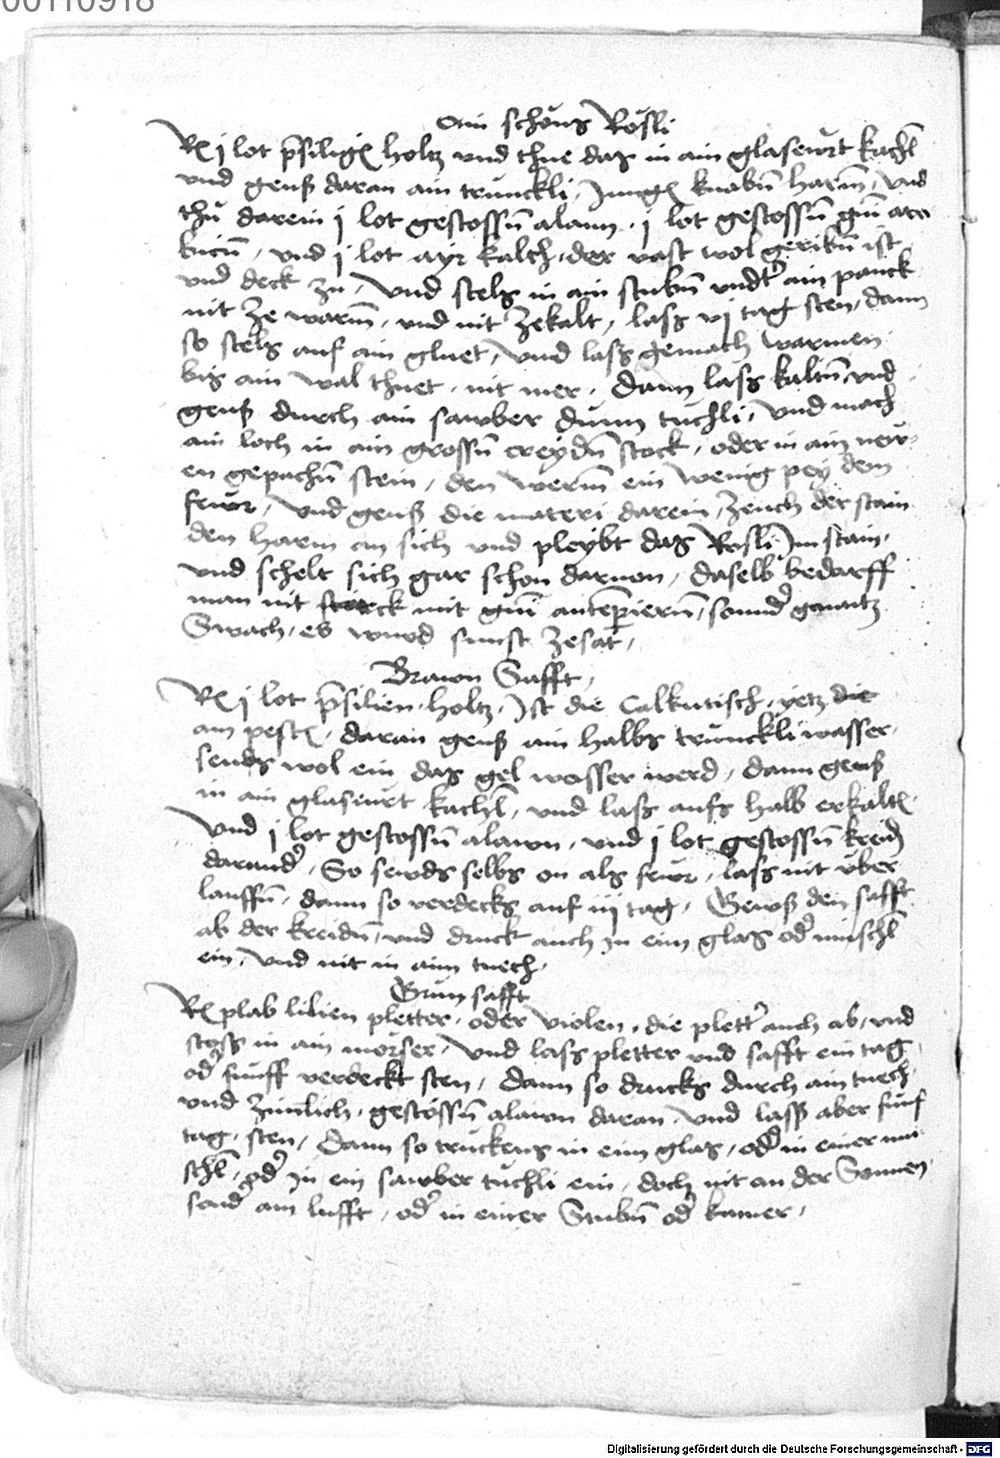 00110918
Ain schöns Rösli
Rx j lot prsilige holtz vnd thue das in ain glaseurt kachl
vnd geuß daran ain trünckli Junge knabn harm, vnd
thü darein j lot gestossn alaun, j lot gestossn gui ara
bicum, vnd j lot ayr kalch, der vast wol geribn ist
vnd deck zu, Vnd stels in ain stubn vndter ain panck
nit ze warm, vnd nit ze kalt, lass vj tag sten, dann
so stels auf ain gluet, vnd lass gemach warmen
bis ain wal thuet, nit mer, Dann lass kaltn, vnd
geuß durch ain sauber dünn tüchli, vnd mach
ain loch in ain grossn creydn stock, oder in ain neu-
en gepachn stein, den werm ein wenig pey dem
feur, vnd geuß die materi darein, Zeuch der stain
den harm an sich vnd pleybt das Rösli Im stain,
vnd schelt sich gar schon daruon, daselb bedarff
man nit starck mit gui antempieren, sonnder ganntz
Swach, es wurd sunst ze sat,
Brawn Safft,
Rx j lot prsilien holtz, Ist die Calkutisch, yetz die
am peste, daran geuß ain halbs trünckli wasser,
seuds wol ein das gel wasser werd, dann geuß
in ain glaseurt kachl, vnd lass aufs halb erkalte
Vnd j lot gestossn alawn, vnd j lot gestossn kreid
darunder, So seuds selbs on als feur, lass nit vber
lauffn, dann so verdecks auf iij tag, Gewß den safft
ab der kreidn, vnd druck auch in eim glas oder muschl
ein, vnd nit in aim tuech,
Grün safft
Rx plab lilien pletter, oder violen, die pletter auch ab, vnd
stoß in ain mörser, Vnd lass pletter vnd safft ein tag
oder fünff verdeckt sten, Dann so drucks durch ain tuech
vnd zimlich, gestössn alawn daran, vnd lass aber fünf
tag, sten, Dann so trückens in eim glas, oder in einer mu
schl, oder in ein sawber tüchli ein, doch nit an der Sonnen
sonder am lufft, oder in einer Stubn oder kamer,
Digitalisierung gefördert durch die Deutsche Forschungsgemeinschaft - DFG